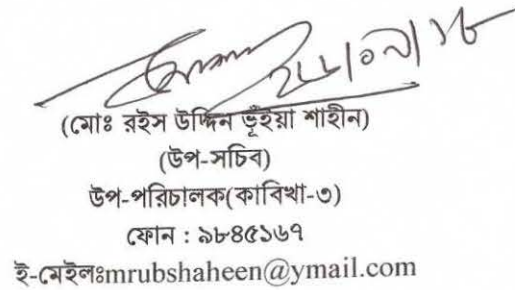 ২৮/০৯/১৮
(মোঃ রইস উদ্দিন ভূঁইয়া শাহীন)
(উপ-সচিব)
উপ-পরিচালক(কাবিখা-৩)
ফোন : ৯৮৪৫১৬৭
ই-মেইলঃmrubshaheen@ymail.com